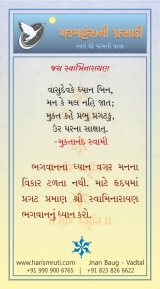 પરમહંસની પ્રસાદી
જય સ્વામિનારાયણ
વાસુદેવકે ધ્યાન બિન,
મન કે મલ નહિ જાત;
મુક્ત કહે પ્રભુ પ્રગટકું,
ઉર ધરના સાક્ષાત્.
-મુક્તાનંદ સ્વામી
ભગવાનના ધ્યાન વગર મનના
વિકાર ટળતા નથી. માટે હૃદયમાં
પ્રગટ પ્રમાણ શ્રી સ્વામિનારાયણ
ભગવાનનું ધ્યાન કરો.
www.harismruti.com
Jnan Baug - Vadtal
+91 990 900 6765 | +91 823 826 6622